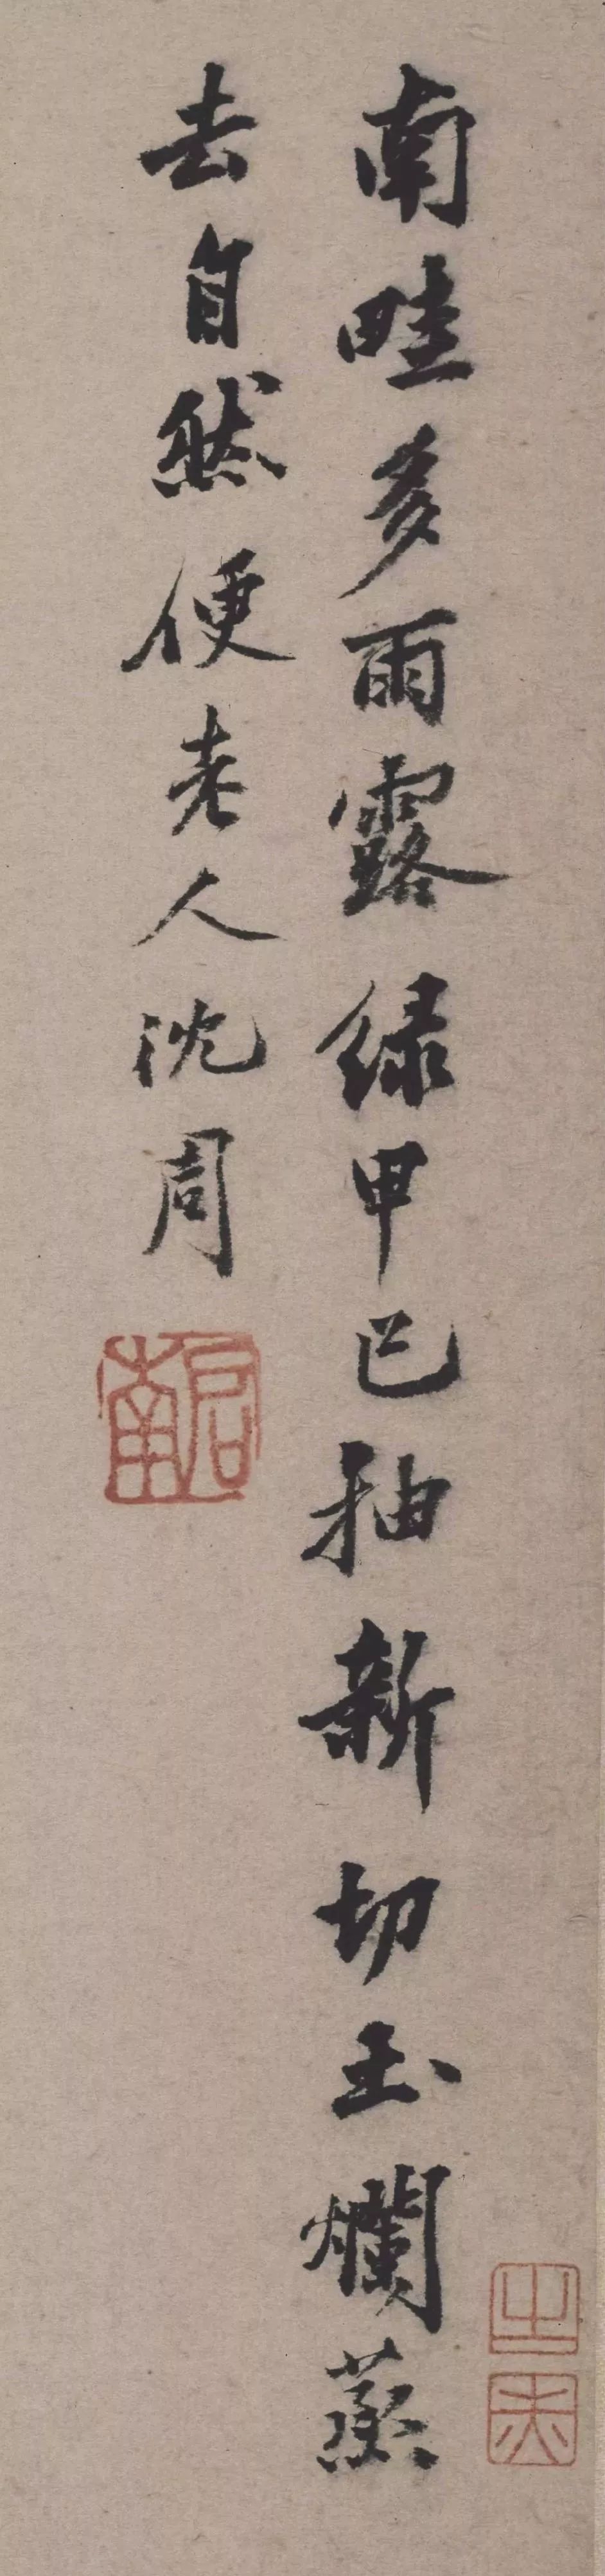 南畦多雨露緑甲已抽新切玉爛蒸
去自然便老人沈周
啟南